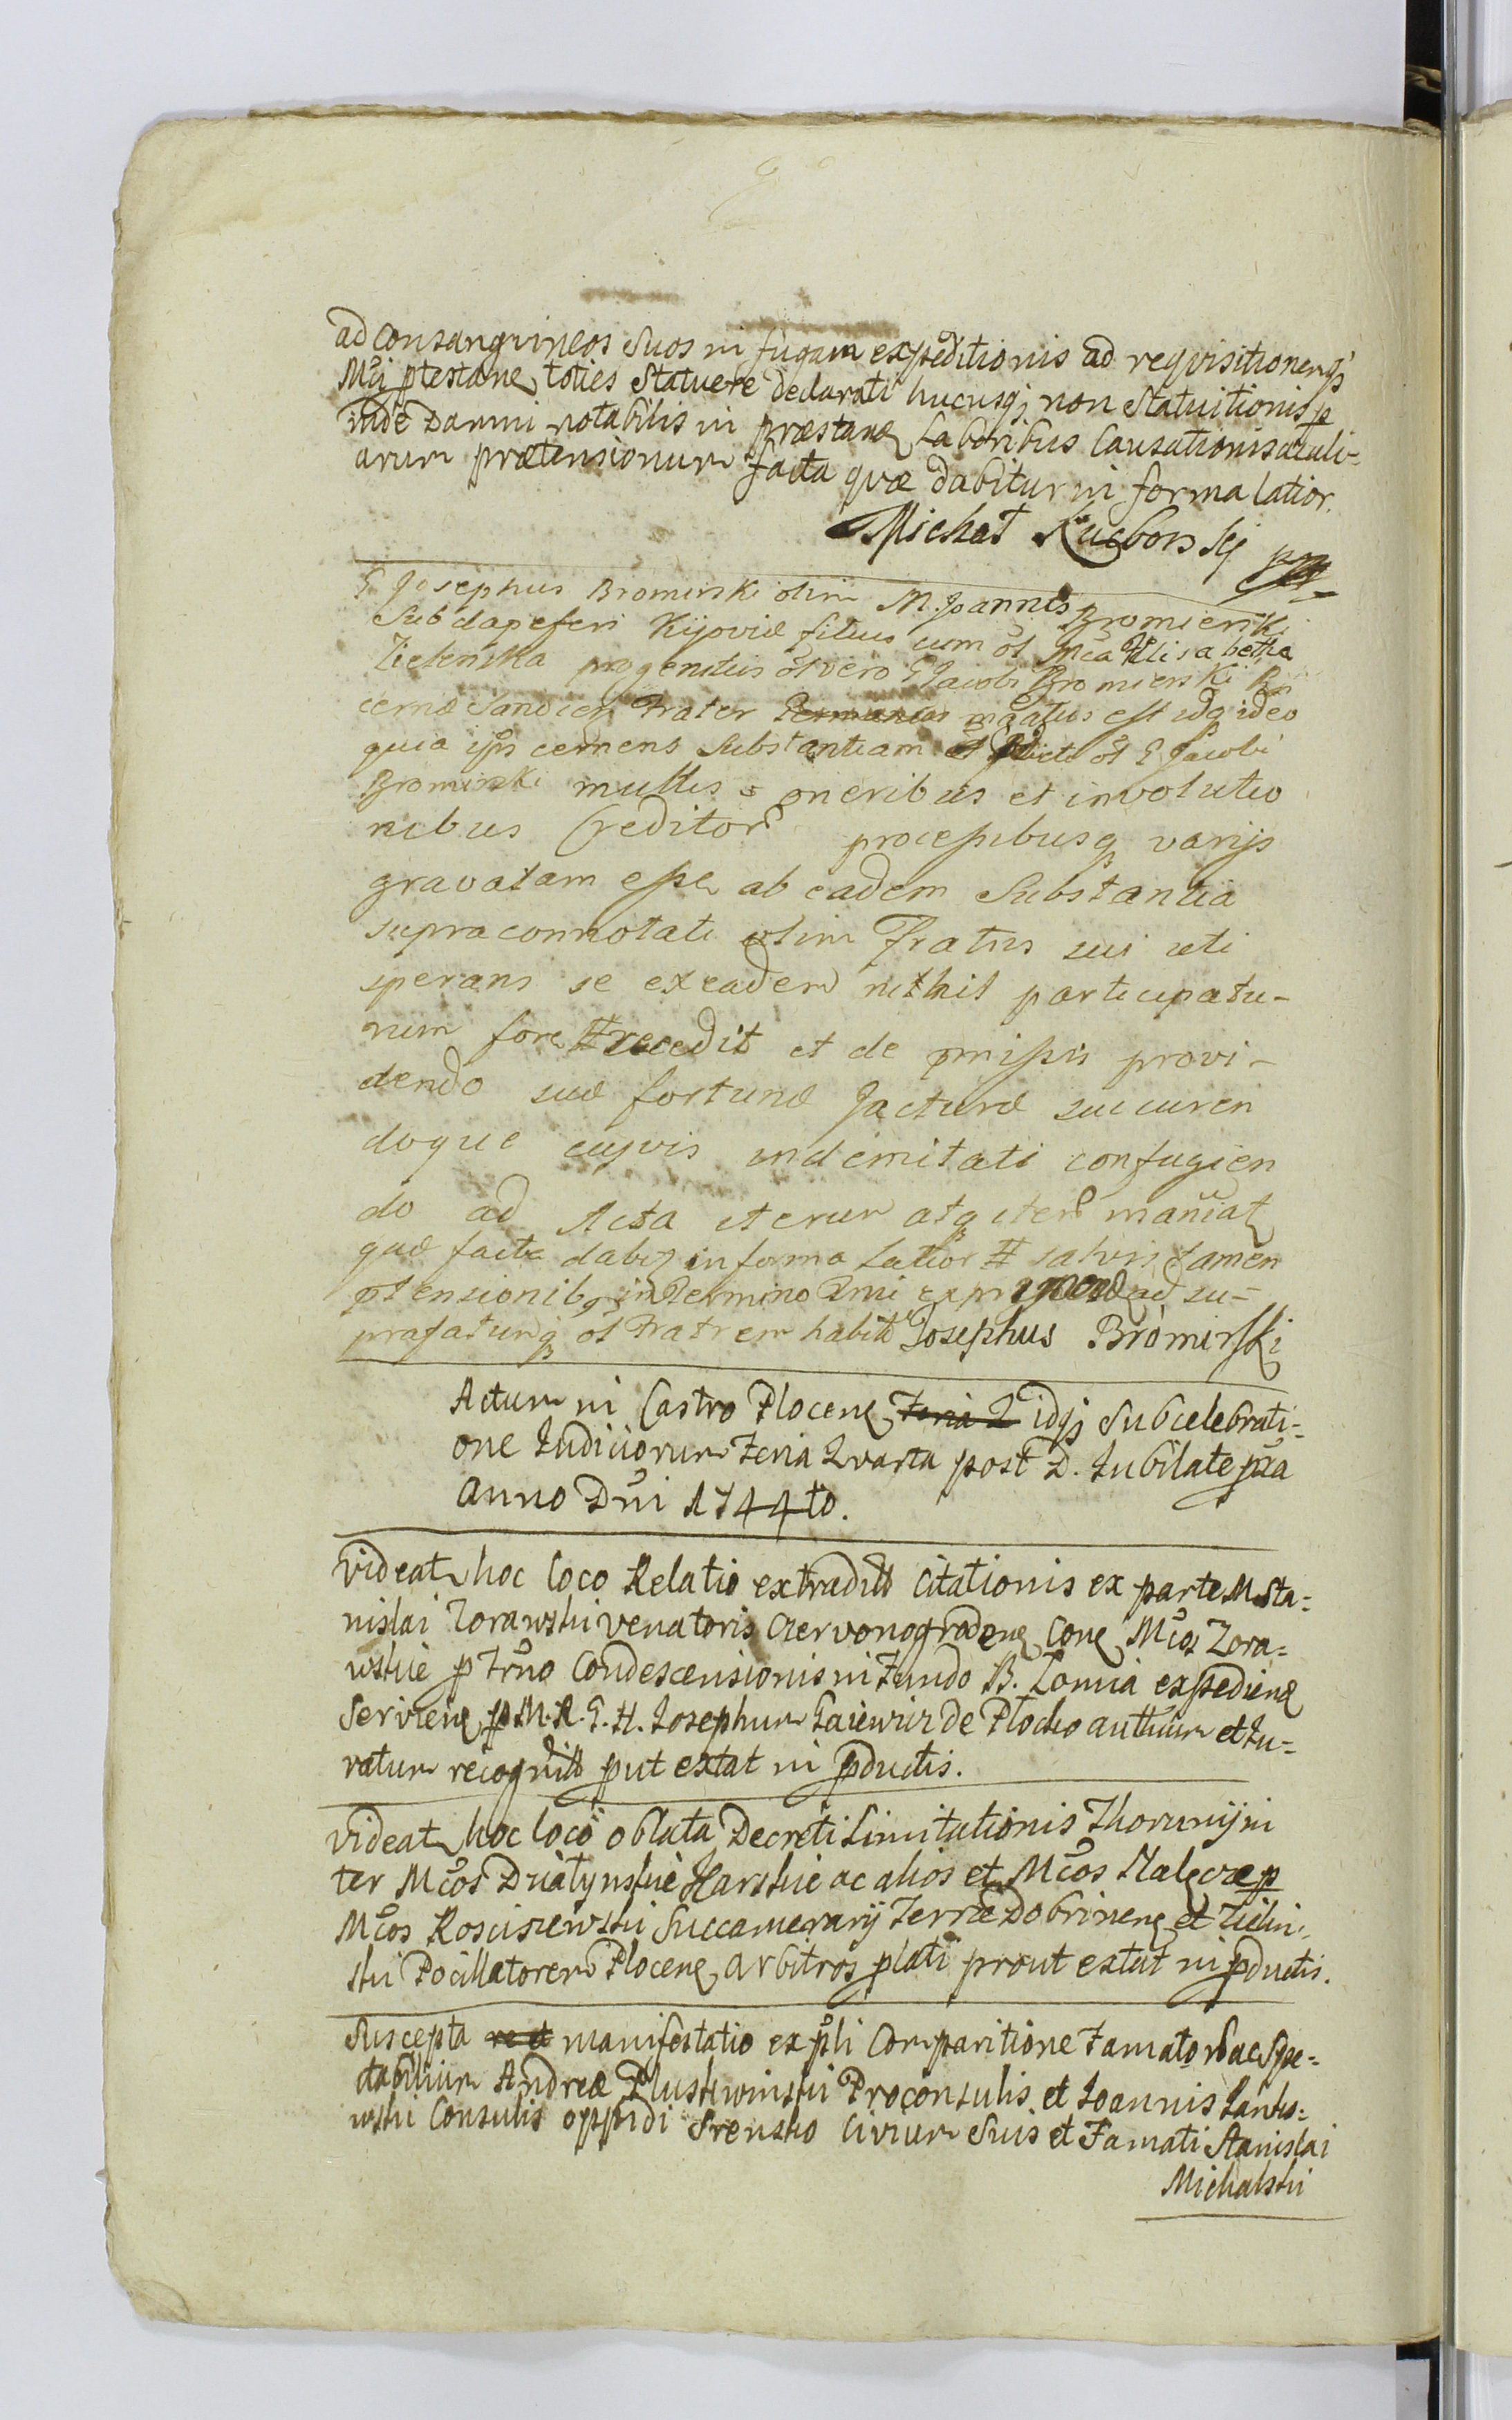 ad Consangvineos Suos in fugam expeditionis ad reqvisitionemqz
Mci ptestane toties Statuere declarati hucusqz non Statuitionis p
inde Damni notabilis in præstane Laboribus Causationis ac ali-
arum prætensionum facta qvæ dabitur in forma latior.
Michał Kucborskj
G Josephus Bromirski olim M. Joannis Bromierski
Subdapiferi Kijoviæ filius cum ol Mca Elisabetha
Zielenska progenitus ol vero G Jacobi Bromierski Pin
cernæ Sanocien Frater Germanus mgatus est idq ideo
quia ips cernens Substantiam dicti ol G Jacobi
Bromirski multis oneribus et involutio
nibus Creditor processibusq varijs
gravatam esse ab eadem Substantia
supraconnotati olim Fratris sui uti
sperans se ex eadem nihil participatu-
rum fore # recedit et de pmissis provi-
dendo suæ fortunæ Jacturæ succuren
doque cujvis indemitati confugien
do ad Acta iterum atq iter mañiat
quæ facta dabz in forma Latior # salvis tamen
ptensionibq in Termino Dmi exprimend ad su-
prafatumq ol Fratrem habit Josephus Bromirski
Actum in Castro Plocene Feria 2 idqz Sub celebrati-
one Judiciorum Feria Qvarta post D. Jubilate pxa
Anno Dni 1744to.
Videat hoc loco Relatio extradit Citationis ex parte M Sta-
nislai Zorawski venatoris Czervonogrodene Cone Mcos Zora-
wskie p Trno Condescensionis in Fundo B. Lomia expediene
Serviene p M. R. G. H. Josephum Gaiewicz de Plocko authum et Ju-
ratum recognit put extat in pductis.
Videat hoc loco oblata Decreti Limitationis Thorunij in
ter Mcos Działynskie Karskie ac alios et Mcos Nalęcze p
Mcos Rosciszewski Succamerarij Terræ Dobrinene et Zielin-
ski Pocillatorem Plocene Arbitros plati prout extat in pductis.
Suscepta re et manifestatio ex pli Comparitione Famator ac Spe-
ctabilium Andreæ Pluskwinski Proconsulis et Joannis
wski Consulis oppidi Srensko Civium Suis et Famati Stanislai
Michalski